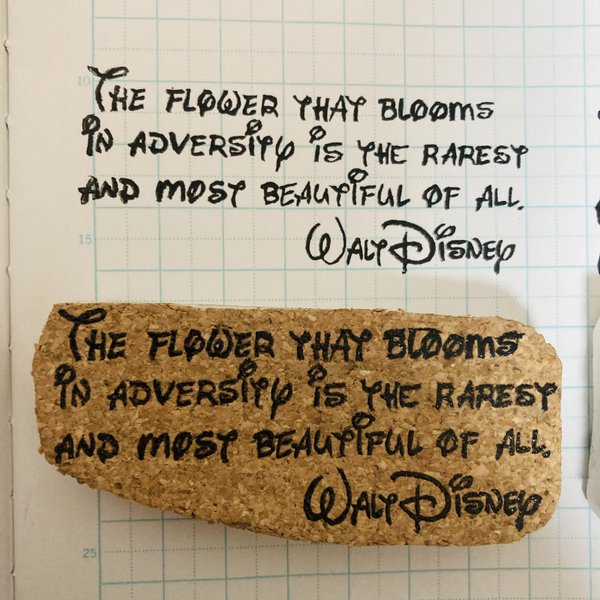 10
THE FLOWER THAT BLOOMS
IN ADVERSITY IS THE RAREST
AND MOST BEAUTIFUL OF ALL.
15
WALT DISNEY
THE FLOWER THAT BLOOMS
IN ADVERSITY IS THE RAREST
AND MOST BEAUTIFUL OF ALL.
WALT DISNEY
25